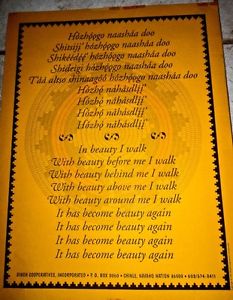 Hózhǫ́ǫgo naasháa doo
Shitsijį' hózhǫ́ǫgo naasháa doo
Shikéédę́ę́' hózhǫ́ǫgo naasháa doo
Shideigi hózhǫ́ǫgo naasháa doo
T'áá altso shinaagóó hózhǫ́ǫgo naasháa doo
Hózhǫ́ náhásdlį́į́'
Hózhǫ́ náhásdlį́į́'
Hózhǫ́ náhásdlį́į́'
Hózhǫ́ náhásdlį́į́'
In beauty I walk
With beauty before me I walk
With beauty behind me I walk
With beauty above me I walk
With beauty around me I walk
It has become beauty again
It has become beauty again
It has become beauty again
It has become beauty again
DINEH COOPERATIVES, INCORPORATED • P.O. BOX 2060 • CHINLE, NAVAJO NATION 86503 • 602/674-3411